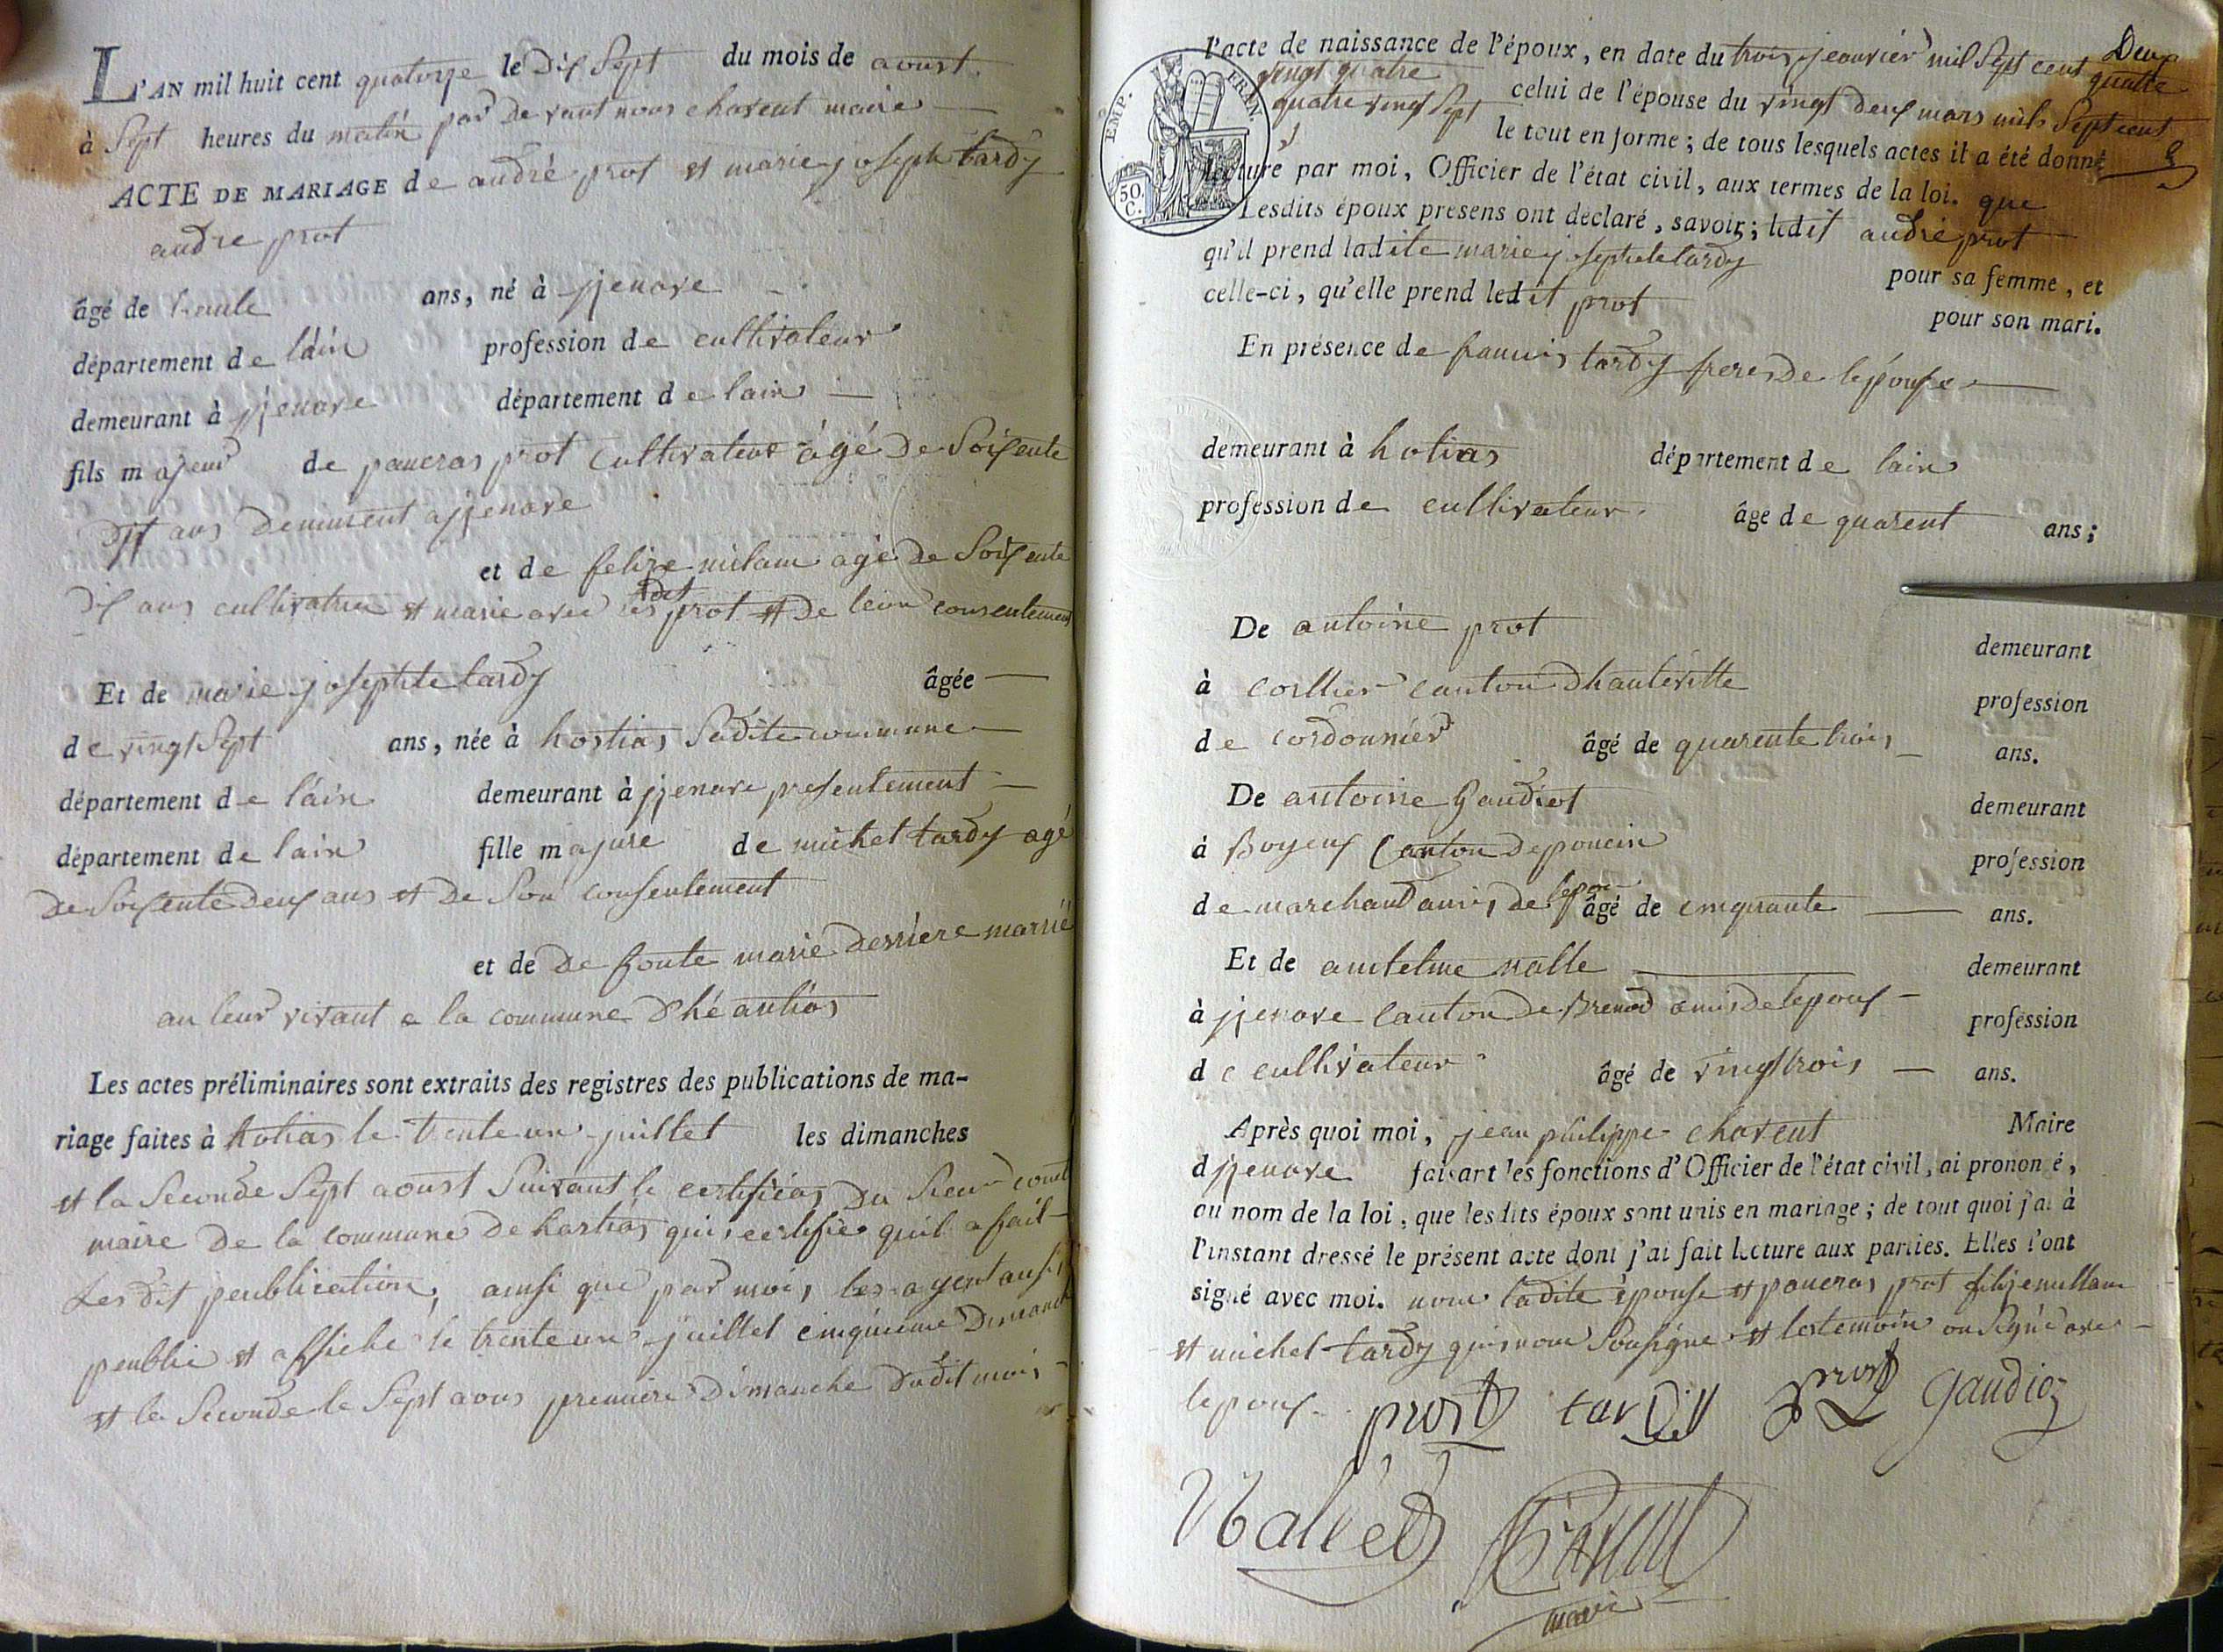 L'AN mil huit cent quatorze le Dix Sept du mois de aoust.
à Sept heures du matin par Devant nous chavent maire
ACTE DE MARIAGE de andré prot et marie joseph tardy
andre prot
âgé de trente ans, né à jjenore
département de lain profession de cultivateur
demeurant à jjenore département de lain
fils majeur de pancras prot cultivateur âgé De Soixente
Dix ans Demeurent a jjenore
et de felize milam agé De Soixente
Dix ans cultivatrice et marie avec les dit prot et De leur consentement
Et de marie josephte tardy âgée
de vingt Sept ans, née à hostias Sadite commune
département de lain demeurant à jjenore presentement
département de lain fille majure de michel tardy agé
De Soixente deux ans et De Son consentement
et de De fonte marie Derriere marié
au leur vivant a la commune D'hé antias
Les actes préliminaires sont extraits des registres des publications de ma-
riage faites à hotias le trente un juillet les dimanches
et la Seconde Sept aoust Suivant le certificas Du Sieur
maire De la commune De hostias qui certifie quil a fait
Les Dit peublication, ainsi que par moi,
peublié et affiché le trente un juillet cinquieme Dimanche
et la Seconde le Sept aous premiere Dimanche Dudit mois
l'acte de naissance de l'époux, en date du trois jeanvier mil Sept cent Deux
vingt quatre quatre
celui de l'épouse du vingt Deux mars mil Sept cent
quatre vingt Sept
le tout en forme; de tous lesquels actes il a été donné
EMP. FRAN.
50 C.
lecture par moi, Officier de l'état civil, aux termes de la loi. que
Lesdits époux présens ont déclaré, savoir; ledit andré prot
qu'il prend ladite marie josephte tardy pour sa femme, et
celle-ci, qu'elle prend ledit prot pour son mari.
En présence de francois tardy frere De lépouse
demeurant à hotias département de lain
profession de cultivateur âge de quarent ans;
De antoine prot demeurant
à corllier canton D'hauteville profession
de cordonnier âgé de quarente trois ans.
De antoine Gaudiot demeurant
à Boyeux Canton De poncin profession
de marchand amis De lepou âgé de cinquante ans.
Et de antelme nalle demeurant
à jjenore Canton De Brenod amis De lepoux profession
de cultivateur âgé de vingt trois ans.
Après quoi moi, jean philippe chavent Maire
d jjenore faisant les fonctions d'Officier de l'état civil, ai prononcé,
au nom de la loi, que lesdits époux sont unis en mariage; de tout quoi j'ai à
l'instant dressé le présent acte dont j'ai fait lecture aux parties. Elles l'ont
signé avec moi. non ladite épouse et pancras prot
et michel tardy qui non Sousigne et les temoin on Signé avec
lepoux prost tardy prost Gaudioz
Nallet Chavent
maire